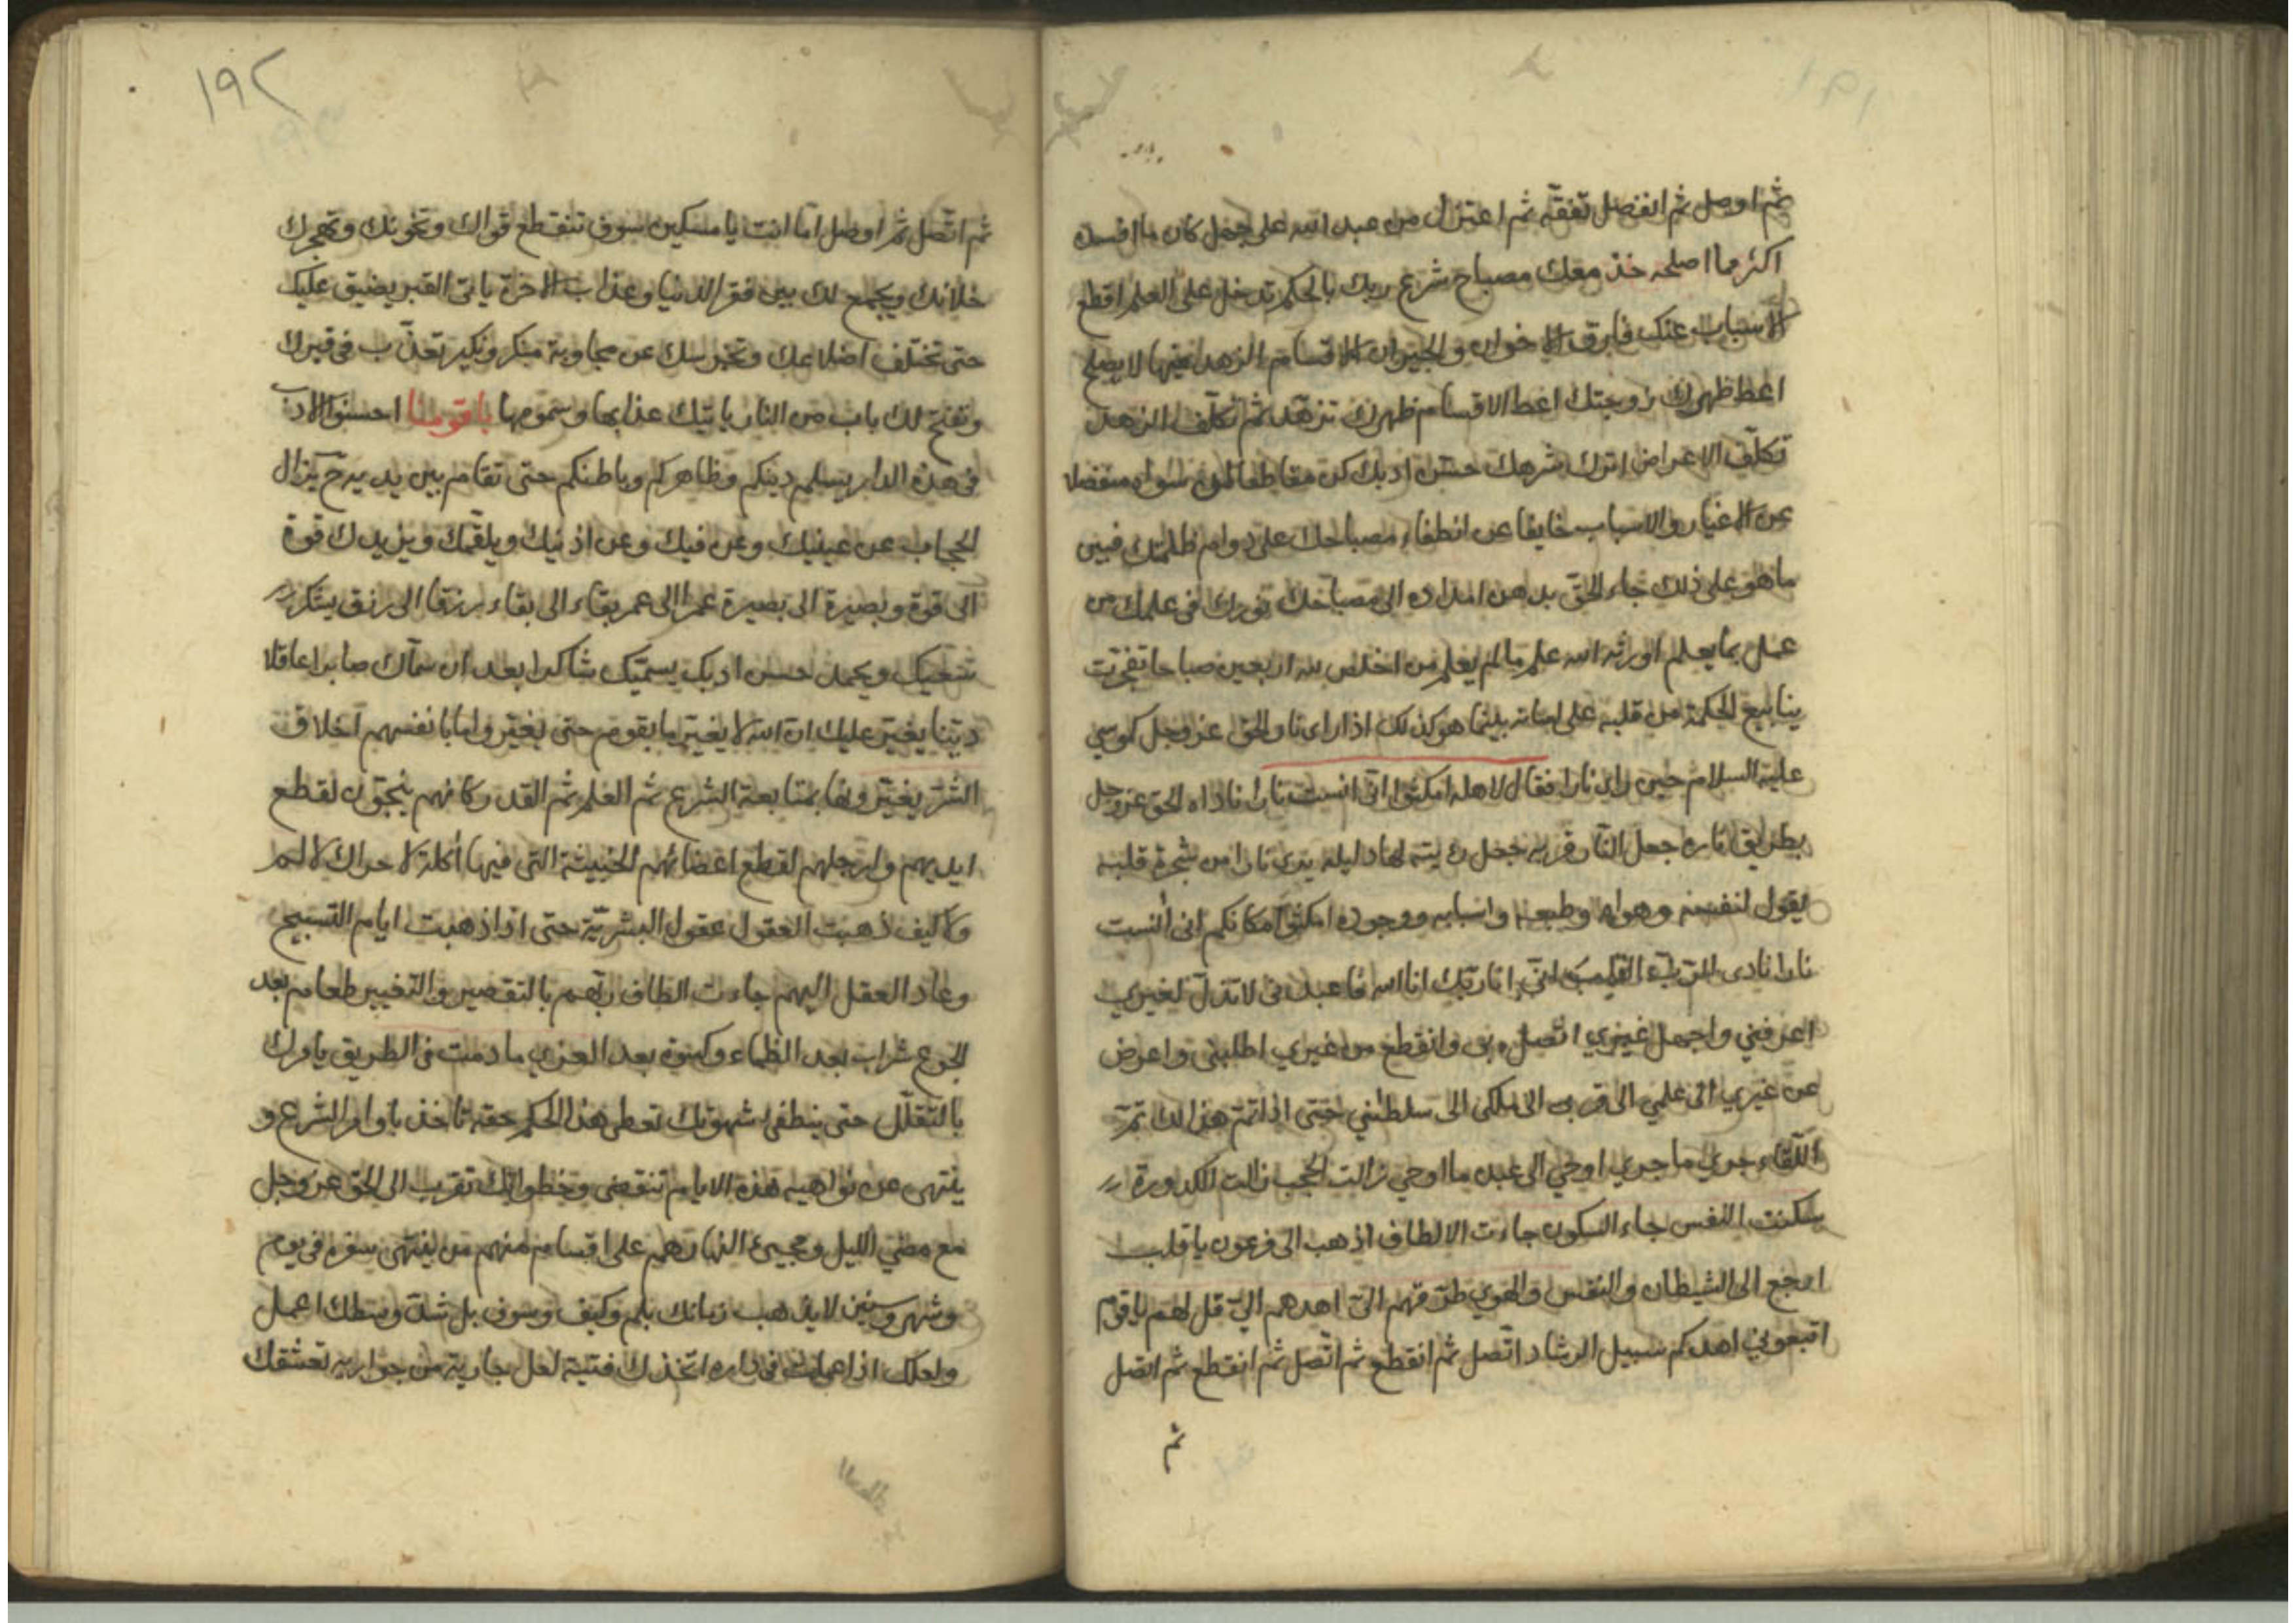 ثم اوصل ثم انفصل تفقّه ثم اعتزل من عبد الله على جهل كان ما افسده
اكثر مما اصلحه خذ معك مصباح شرع ربك بالحكم تدخل على العلم اقطع
الاسباب عنك فارق الاخوان والجيران الاقسام الزهد فيها لا يصلح
اعط ظهرك زوجتك اعط الاقسام ظهرك تزهّد ثم تكلّف الزهد
تكلّف الاعراض اترك شرهك حسّن ادبك كن مقاطعا لمن سواه منفصلا
عن الاغيار والاسباب خايفا عن انطفاء مصباحك على دوام ظلمتك فبين
ما هو على ذلك جاء الحق بدهن امداده الى مصباحك نورك فى علمك من
عمل بما يعلم اورثه الله علم ما لم يعلم من اخلص لله اربعين صباحا تفجرت
ينابيع الحكمة من قلبه على لسانه بينما هو كذلك اذا راى نار الحق عز وجل كموسي
عليه السلام حين راى نارا فقال لاهله امكثوا انى انست نارا ناداه الحق عز وجل
بطريق ناره جعل النار قربه جعل رؤيته لها دليله يرى نارا من شجرة قلبه
يقول لنفسه وهواه وطبعه واسبابه ووجوده امكثوا مكانكم انى انست
نارا نادى السر القلب انى انا ربك انا الله فاعبدنى لا تذل لغيري
اعرفني واجهل غيري اتصل بى وانقطع من غيري اطلبنى واعرض
عن غيري الى علمي الى قربى الى ملكى الى سلطنتي حتى اذا تم هذا لك تم
اللقاء جري ما جري اوحي الى عبده ما اوحي زالت الحجب زالت الكدورة
سكنت النفس جاء السكون جاءت الالطاف اذهب الى فرعون يا قلب
ارجع الى الشيطان والنفس والهوي طرّقهم الىّ اهدهم الىّ قل لهم يا قوم
اتبعوني اهدكم سبيل الرشاد اتّصل ثم انقطع ثم اتّصل ثم انقطع ثم اتصل
ثم
١٩٢
ثم اتّصل ثم اوصل امّا انت يا مسكين سوف تنقطع قواك وتخونك وتهجرك
خلانك ويجمع لك بين فقر الدنيا وعذاب الاخرة ياتى القبر يضيق عليك
حتى تختلف اضلاعك وتخرسك عن مجاوبة منكر ونكير تعذّب فى قبرك
وتفتح لك باب من النار ياتيك عذابها وسمومها يا قومنا احسنوا الادب
فى هذه الدار يسلم دينكم وظاهركم وباطنكم حتى تقام بين يديه ح يزال
الحجاب عن عينيك وعن فيك وعن اذنيك ويلقّمك ويزيدك قوة
الى قوة وبصيرة الى بصيرة عمرا الى عمر بقاء الى بقاء رزقا الى رزق يشكر
سعيك ويحمد حسن ادبك يسمّيك شاكرا بعد ان سمّاك صابرا عاقلا
ديّنا يغير عليك ان الله لا يغير ما بقوم حتى يغيروا ما بانفسهم اخلاق
الشر يغيرونها بمتابعة الشرع ثم العلم ثم القدر كانهم ينجون لقطع
ايديهم وارجلهم لقطع اعضائهم الخبيثة التى فيها أكلة لا حراك لا لم
ولا كيف ذهبت العقول عقول البشريّة حتى اذا ذهبت ايام التسبيح
وعاد العقل اليهم جاءت الطاف ربهم بالتقصير والتغيير طعام بعد
الجوع شراب بعد الظماء وكسوة بعد العري ما دمت فى الطريق يامرك
بالتقلّل حتى ينطفى شهوتك تعطى هذا الحكم حقه تاخذ باوامر الشرع و
ينتهى عن نواهيه هذه الايام تنقضى وخطواتك تقرب الى الحق عز وجل
مع مضي الليل ومجيئ النهار هم على اقسام منهم من ينتهى سفره فى يوم
وشهر وسنين لا يذهب زمانك بلم وكيف وسوف بل شدّ وسطك اعمل
ولعلك اذا عملت فى داره اتخذك فتية لعل جارية من جواريه تعشقك